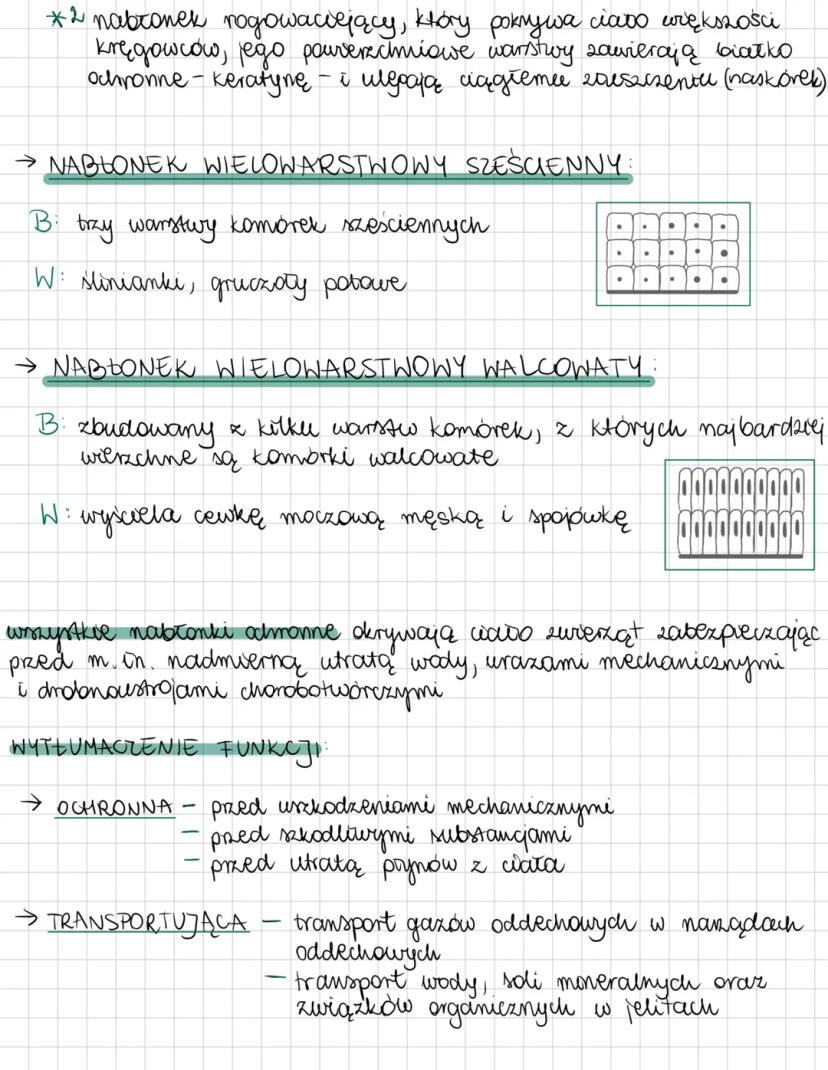 *2 nabłonek rogowaciejący, który pokrywa ciało większości
kręgowców, jego powierzchniowe warstwy zawierają białko
ochronne - keratynę - i ulegają ciągłemu złuszczeniu (naskórek)
→ NABŁONEK WIELOWARSTWOWY SZEŚCIENNY:
B: trzy warstwy komórek sześciennych
W: ślinianki, gruczoły potowe
→ NABŁONEK WIELOWARSTWOWY WALCOWATY:
B: zbudowany z kilku warstw komórek, z których najbardziej
wierzchne są komórki walcowate
W: wyściela cewkę moczową męską i spojówkę
wszystkie nabłonki ochronne okrywają ciało zwierząt zabezpieczając
przed m.in. nadmierną utratą wody, urazami mechanicznymi
i drobnoustrojami chorobotwórczymi
WYTŁUMACZENIE FUNKCJI:
→ OCHRONNA - przed uszkodzeniami mechanicznymi
- przed szkodliwymi substancjami
- przed utratą płynów z ciała
→ TRANSPORTUJĄCA - transport gazów oddechowych w narządach
oddechowych
- transport wody, soli mineralnych oraz
związków organicznych w jelitach